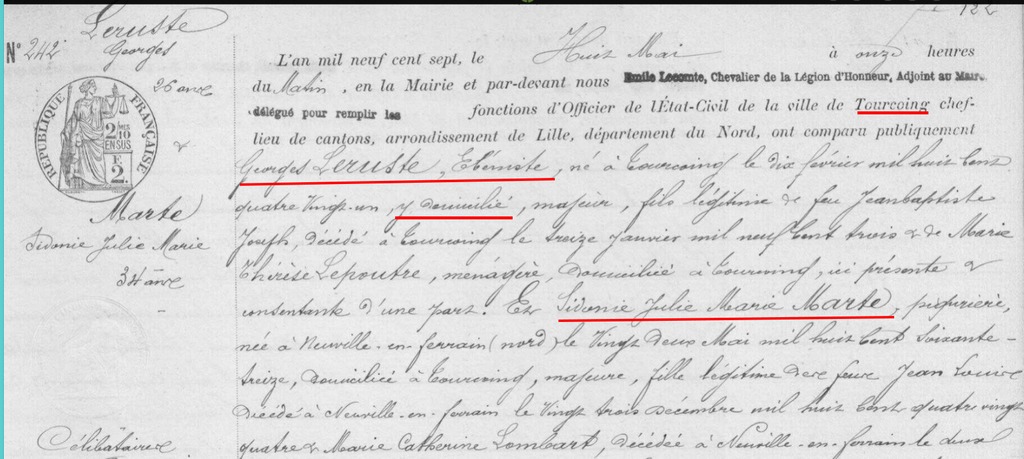 122
Leruste
Georges
N° 242
26 ans
&
RÉPUBLIQUE FRANÇAISE
2
F.
2.
Marte
Sidonie Julie Marie
34 ans
Célibataires
L'an mil neuf cent sept, le Huit Mai à onze heures
du Matin, en la Mairie et par-devant nous Emile Lecomte, Chevalier de la Légion d'Honneur, Adjoint au Maire
délégué pour remplir les fonctions d'Officier de l'État-Civil de la ville de Tourcoing chef-
lieu de cantons, arrondissement de Lille, département du Nord, ont comparu publiquement
Georges Leruste, Ebéniste, né à Tourcoing le dix février mil huit cent
quatre Vingt-un, y domicilié, majeur, fils légitime de feu Jeanbaptiste
Joseph, décédé à Tourcoing le treize Janvier mil neuf cent trois & de Marie
Thérèse Lepoutre, ménagère, domiciliée à Tourcoing, ici présente &
consentante d'une part. Et Sidonie Julie Marie Marte, piqurière,
née à Neuville-en-ferrain (nord) le Vingt deux Mai mil huit cent soixante-
treize, domiciliée à Tourcoing, majeure, fille légitime de feu Jean Louis
décédé à Neuville-en-ferrain le Vingt trois décembre mil huit cent quatre vingt
quatre & Marie Catherine Lombart, décédée à Neuville-en-ferrain le deux